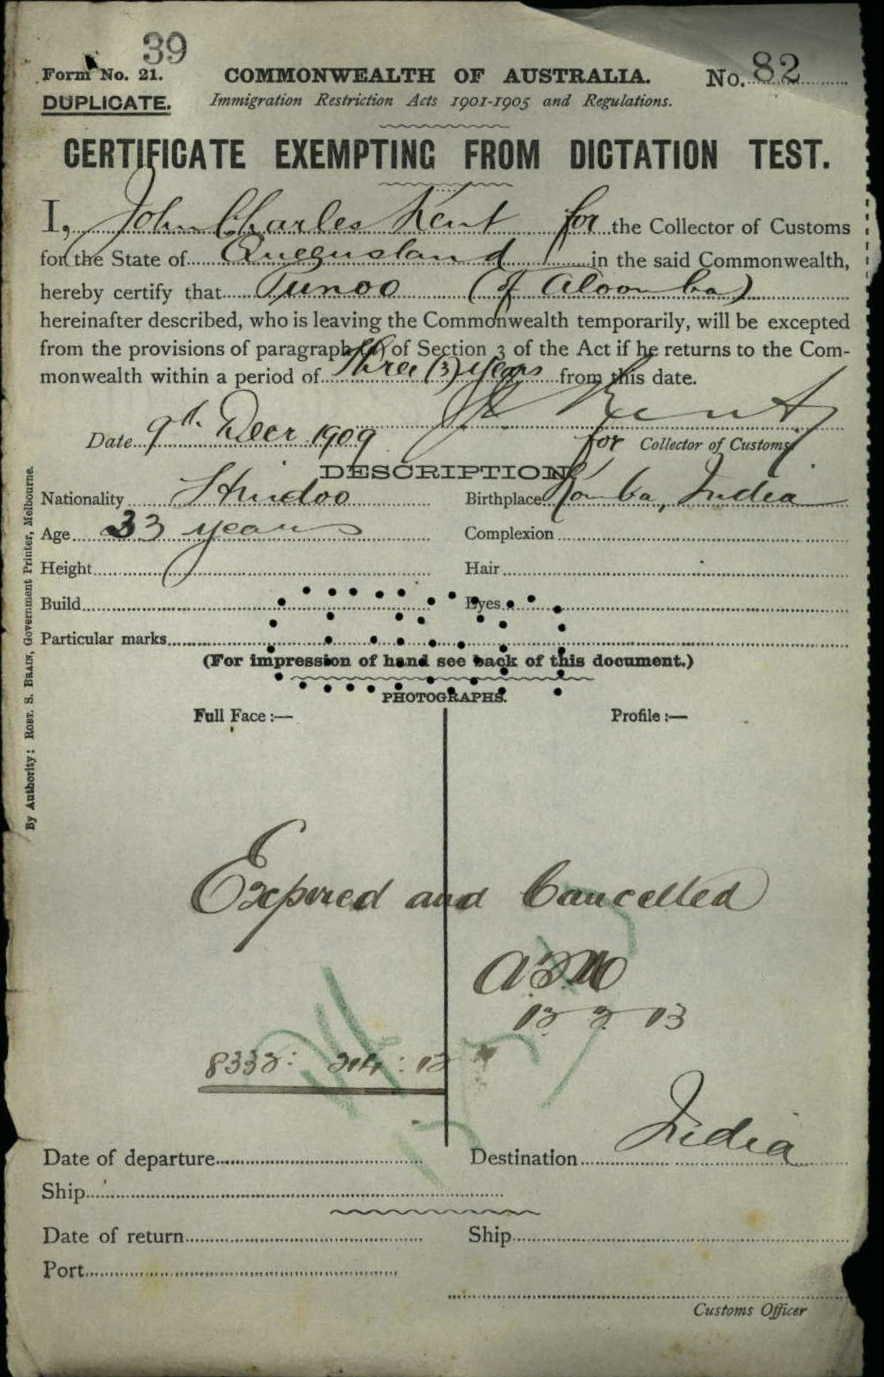 39
Form No. 21. COMMONWEALTH OF AUSTRALIA. No. 82
DUPLICATE. Immigration Restriction Acts 1901-1905 and Regulations.
CERTIFICATE EXEMPTING FROM DICTATION TEST.
I, John Charles Kent for the Collector of Customs
for the State of Queensland in the said Commonwealth,
hereby certify that Punoo (of Aloomba)
hereinafter described, who is leaving the Commonwealth temporarily, will be excepted
from the provisions of paragraph (a) of Section 3 of the Act if he returns to the Com-
monwealth within a period of three (3) years from this date.
J C Kent
Date 9th Decr 1909 for Collector of Customs
DESCRIPTION
Nationality Hindoo Birthplace Bomba, India
Age 33 years Complexion
Height Hair
Build Eyes
Particular marks
(For impression of hand see back of this document.)
PHOTOGRAPHS.
Full Face :— Profile :—
By Authority: ROBT. S. BRAIN, Government Printer, Melbourne.
Expired and Cancelled
12 2 13
Date of departure Destination India
Ship
Date of return Ship
Port
Customs Officer